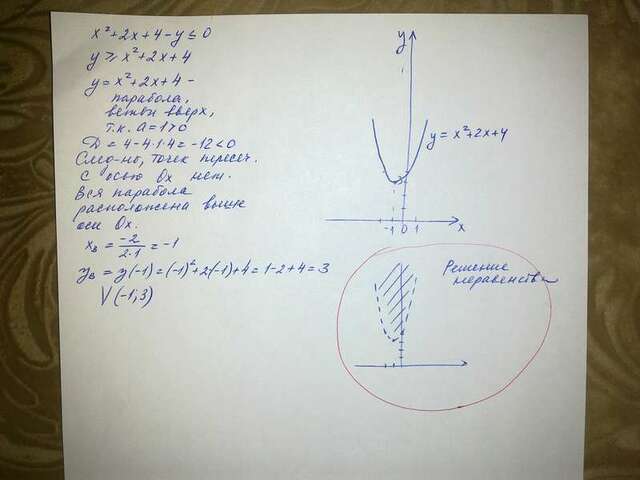 x²+2x+4-y≤0
y≥x²+2x+4
y=x²+2x+4 -
парабола,
ветви вверх,
т.к. a=1>0
D=4-4·1·4=-12<0
След-но, точек пересеч.
с осью Ox нет.
Вся парабола
расположена выше
оси Ox.
xв=-2/2·1=-1
yв=y(-1)=(-1)²+2(-1)+4=1-2+4=3
V(-1;3)
y
y=x²+2x+4
-1 0 1 x
Решение
неравенства